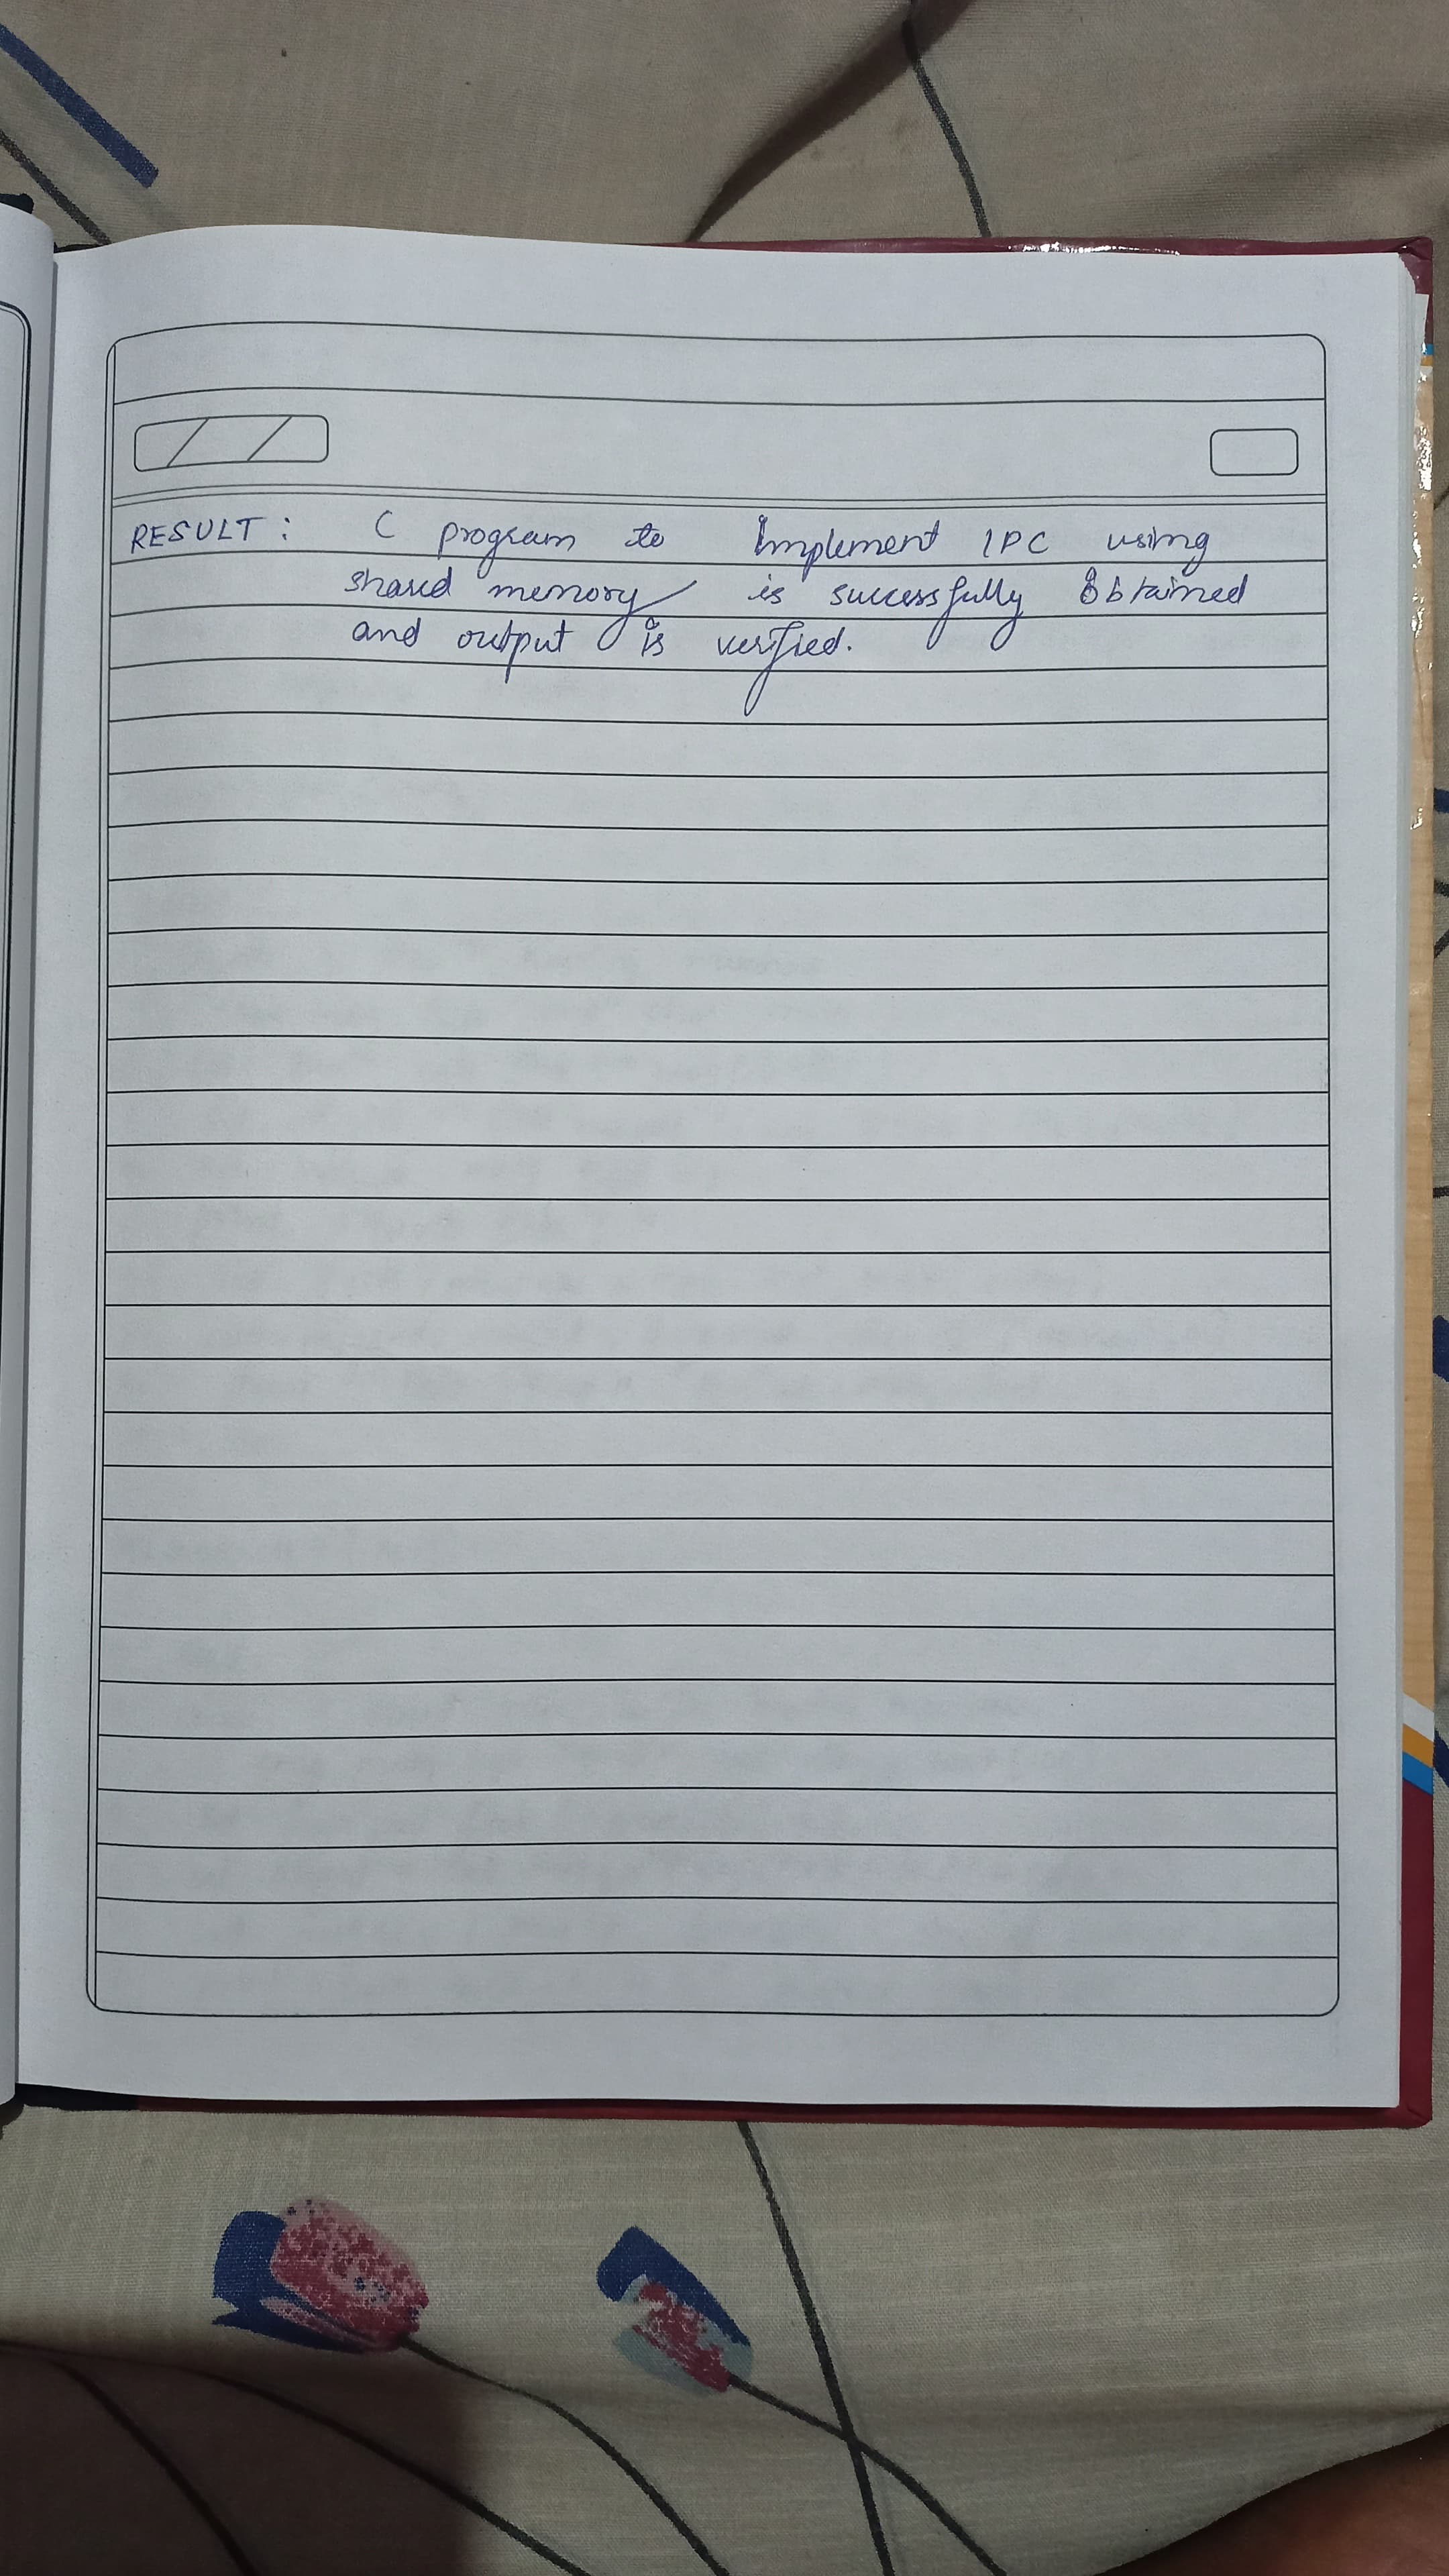 RESULT : C program to Implement IPC using
shared memory is successfully obtained
and output is verified.